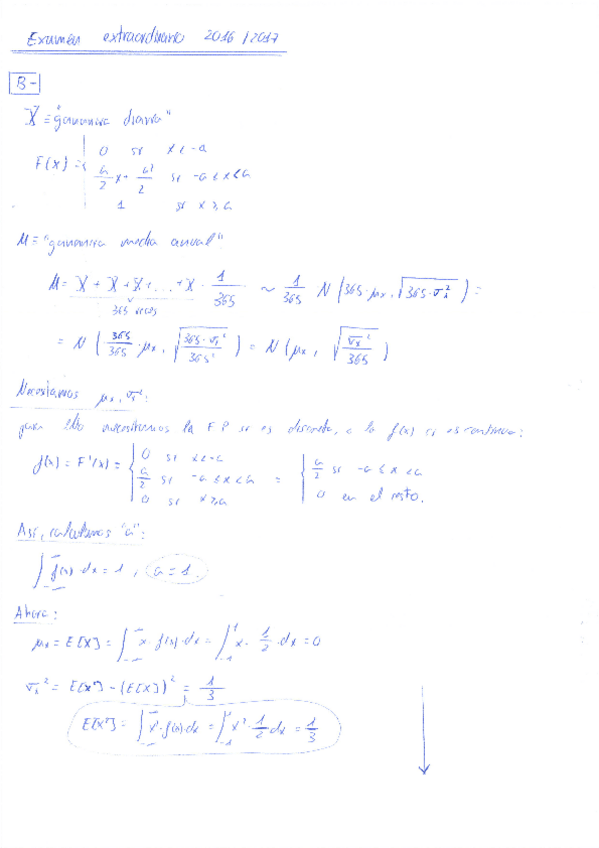 Examen extraordinario 2016/2017
B-
X ≡ "ganancia diaria"
F(x) = { 0 si x < -a
a/2 x + a²/2 si -a ≤ x < a
1 si x ≥ a
M ≡ "ganancia media anual"
M = X + X + X + ... + X · 1/365 ~ 1/365 N (365·μx, √365·σx²) =
365 veces
= N (365/365 · μx, √365·σx²/365²) = N (μx, √σx²/365)
Necesitamos μx, σx²:
para ello necesitamos la F.P si es discreta, o la f(x) si es continua:
f(x) = F'(x) = { 0 si x < -a
a/2 si -a ≤ x < a = { a/2 si -a ≤ x < a
0 si x ≥ a 0 en el resto.
Así, calculamos "a":
∫ f(x) · dx = 1 ; a = 1.
Ahora:
μx = E[X] = ∫ x · f(x) · dx = ∫₋₁¹ x · 1/2 · dx = 0
σx² = E[X²] - (E[X])² = 1/3
E[X²] = ∫ x² · f(x) · dx = ∫₋₁¹ x² · 1/2 dx = 1/3